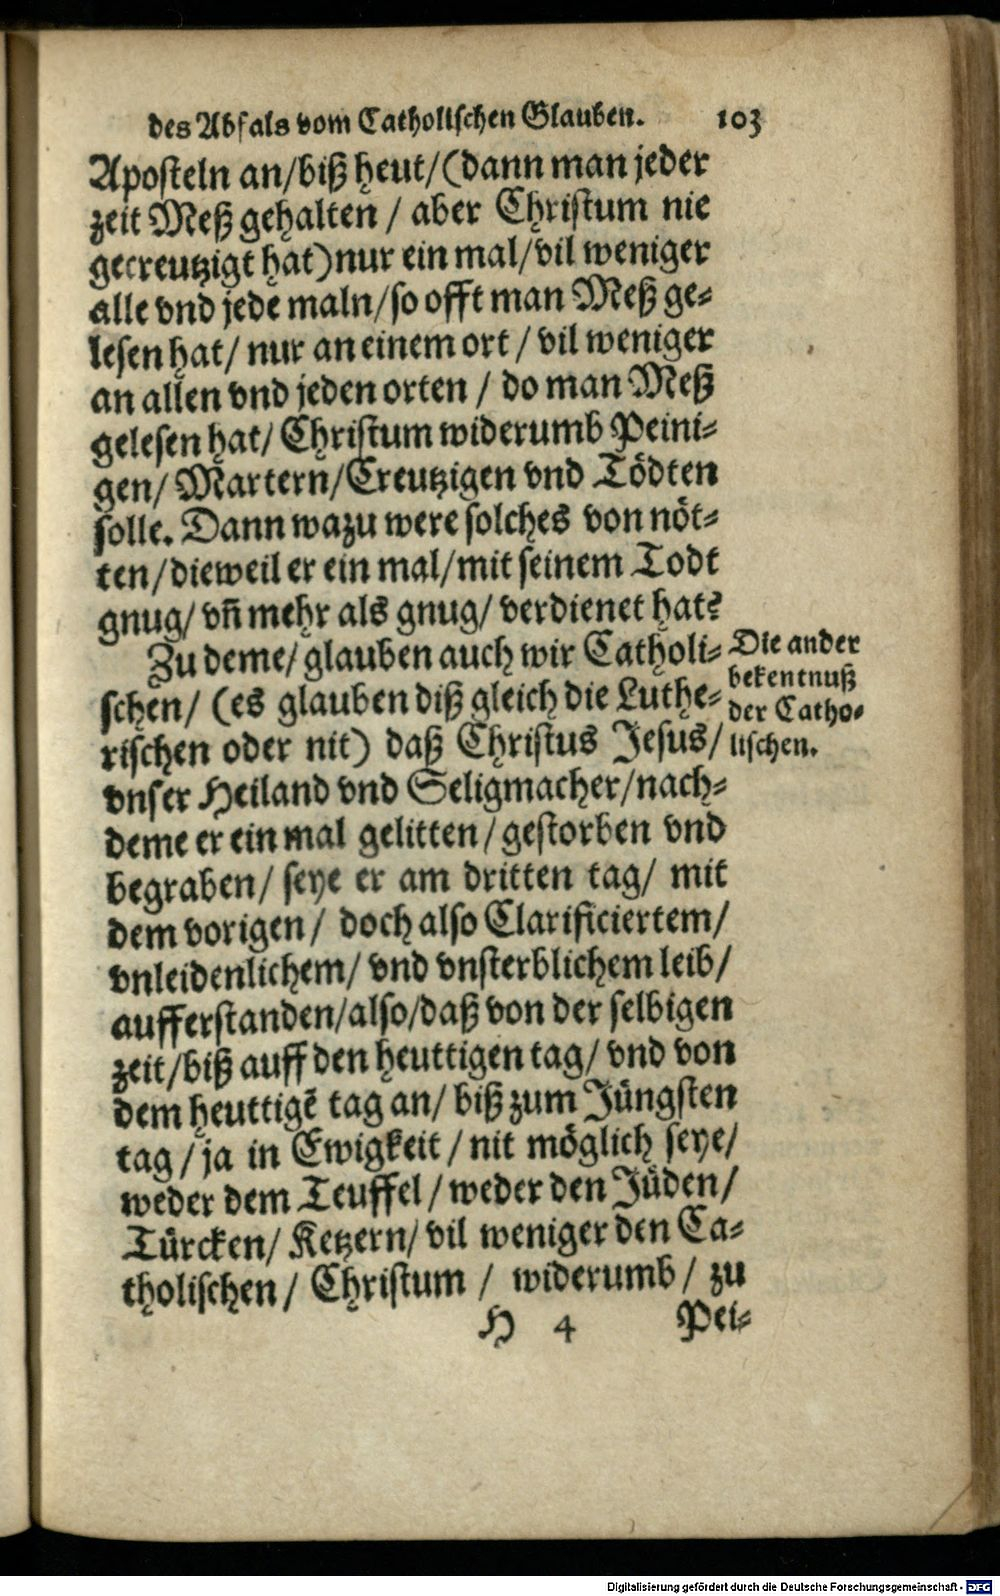 des Abfals vom Catholischen Glauben. 103
Aposteln an/biß heut/(dann man jeder
zeit Meß gehalten / aber Christum nie
gecreutzigt hat)nur ein mal/vil weniger
alle vnd jede maln/so offt man Meß ge-
lesen hat/ nur an einem ort / vil weniger
an allen vnd jeden orten / do man Meß
gelesen hat/ Christum widerumb Peini-
gen/ Martern/Creutzigen vnd Tödten
solle. Dann wazu were solches von nöt-
ten/dieweil er ein mal/mit seinem Todt
gnug/ vn̄ mehr als gnug/ verdienet hat?
Zu deme/ glauben auch wir Catholi-
schen/ (es glauben diß gleich die Luthe-
rischen oder nit) daß Christus Jesus/
vnser Heiland vnd Seligmacher/nach-
deme er ein mal gelitten/gestorben vnd
begraben/ seye er am dritten tag/ mit
dem vorigen/ doch also Clarificiertem/
vnleidenlichem/ vnd vnsterblichem leib/
aufferstanden/also/daß von der selbigen
zeit/biß auff den heuttigen tag/ vnd von
dem heuttigē tag an/ biß zum Jüngsten
tag/ja in Ewigkeit/nit möglich seye/
weder dem Teuffel/weder den Jüden/
Türcken/ Ketzern/ vil weniger den Ca-
tholischen/ Christum / widerumb/ zu
H 4 Pei-
Die ander
bekentnuß
der Catho-
lischen.
Digitalisierung gefördert durch die Deutsche Forschungsgemeinschaft - DFG